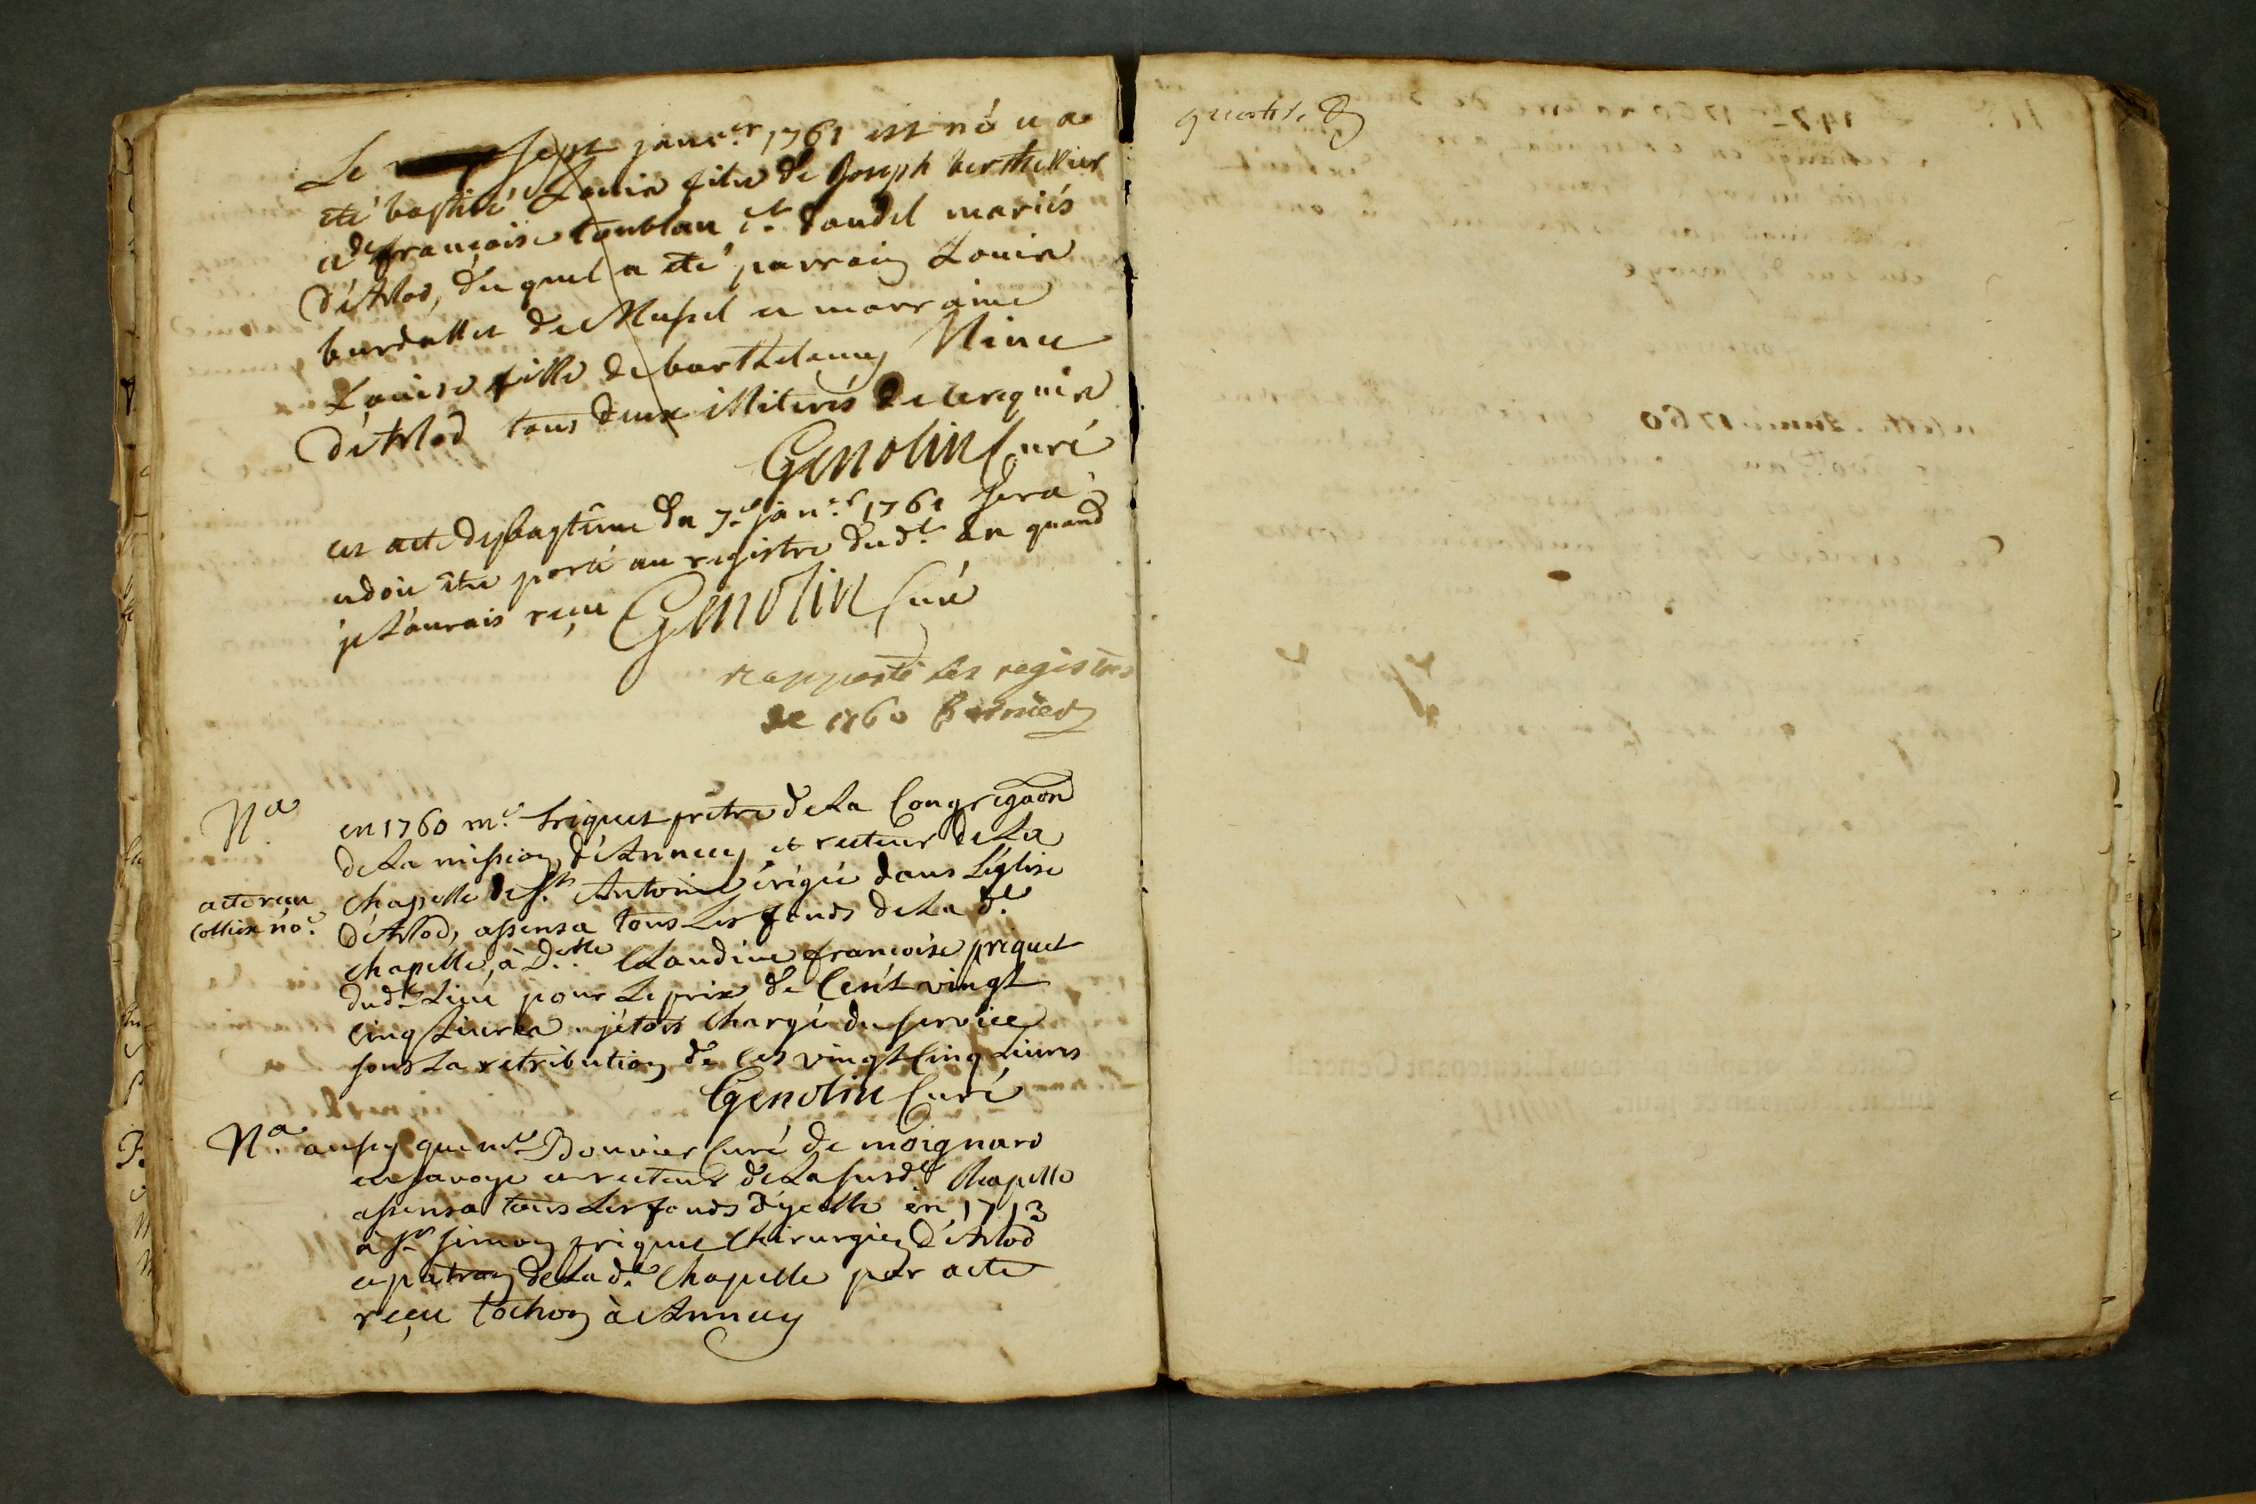 Le sept janv.er 1761 est né et a
été baptisé Louis fils de Joseph berthellier
et de françoise Coublan d.t daudel mariés
d'Arlod, du quel a été parrain Louis
burdallet de Mussel et marraine
Louise fille de barthelemy Ninet
d'Arlod tous deux illiterés de ce requis
Genolin Curé
cet acte de baptême du 7.e jan.r 1761 sera
et doit être porté au registre dud.t an quand
je l'aurais reçu Genolin Curé
rapporté les registres
de 1760 Bernier
N.a en 1760 m.e friquet prêtre de la Congrega͠on
de la mission d'Annecy et recteur de la
chapelle de s.t Antoine érigée dans l'église
acte reçu
collier no.e
d'Arlod, assensa tous les fonds de la d.e
chapelle, à D.elle Claudine françoise friquet
dud.t Lieu pour le prix de Cent vingt
cinq Livres j'étois chargé du service
sous la retribution de ces vingt cinq Livres
Genolin Curé
N.a aussy que m.e Bouvier Curé de moignard
en savoye et recteur de la susd.e Chapelle
assensa tous les fonds d'ycelle en 1713
à s.r simon friquet Chirurgien d'Arlod
et patron de la d.e Chapelle par acte
reçu Tochon à Annecy
1760